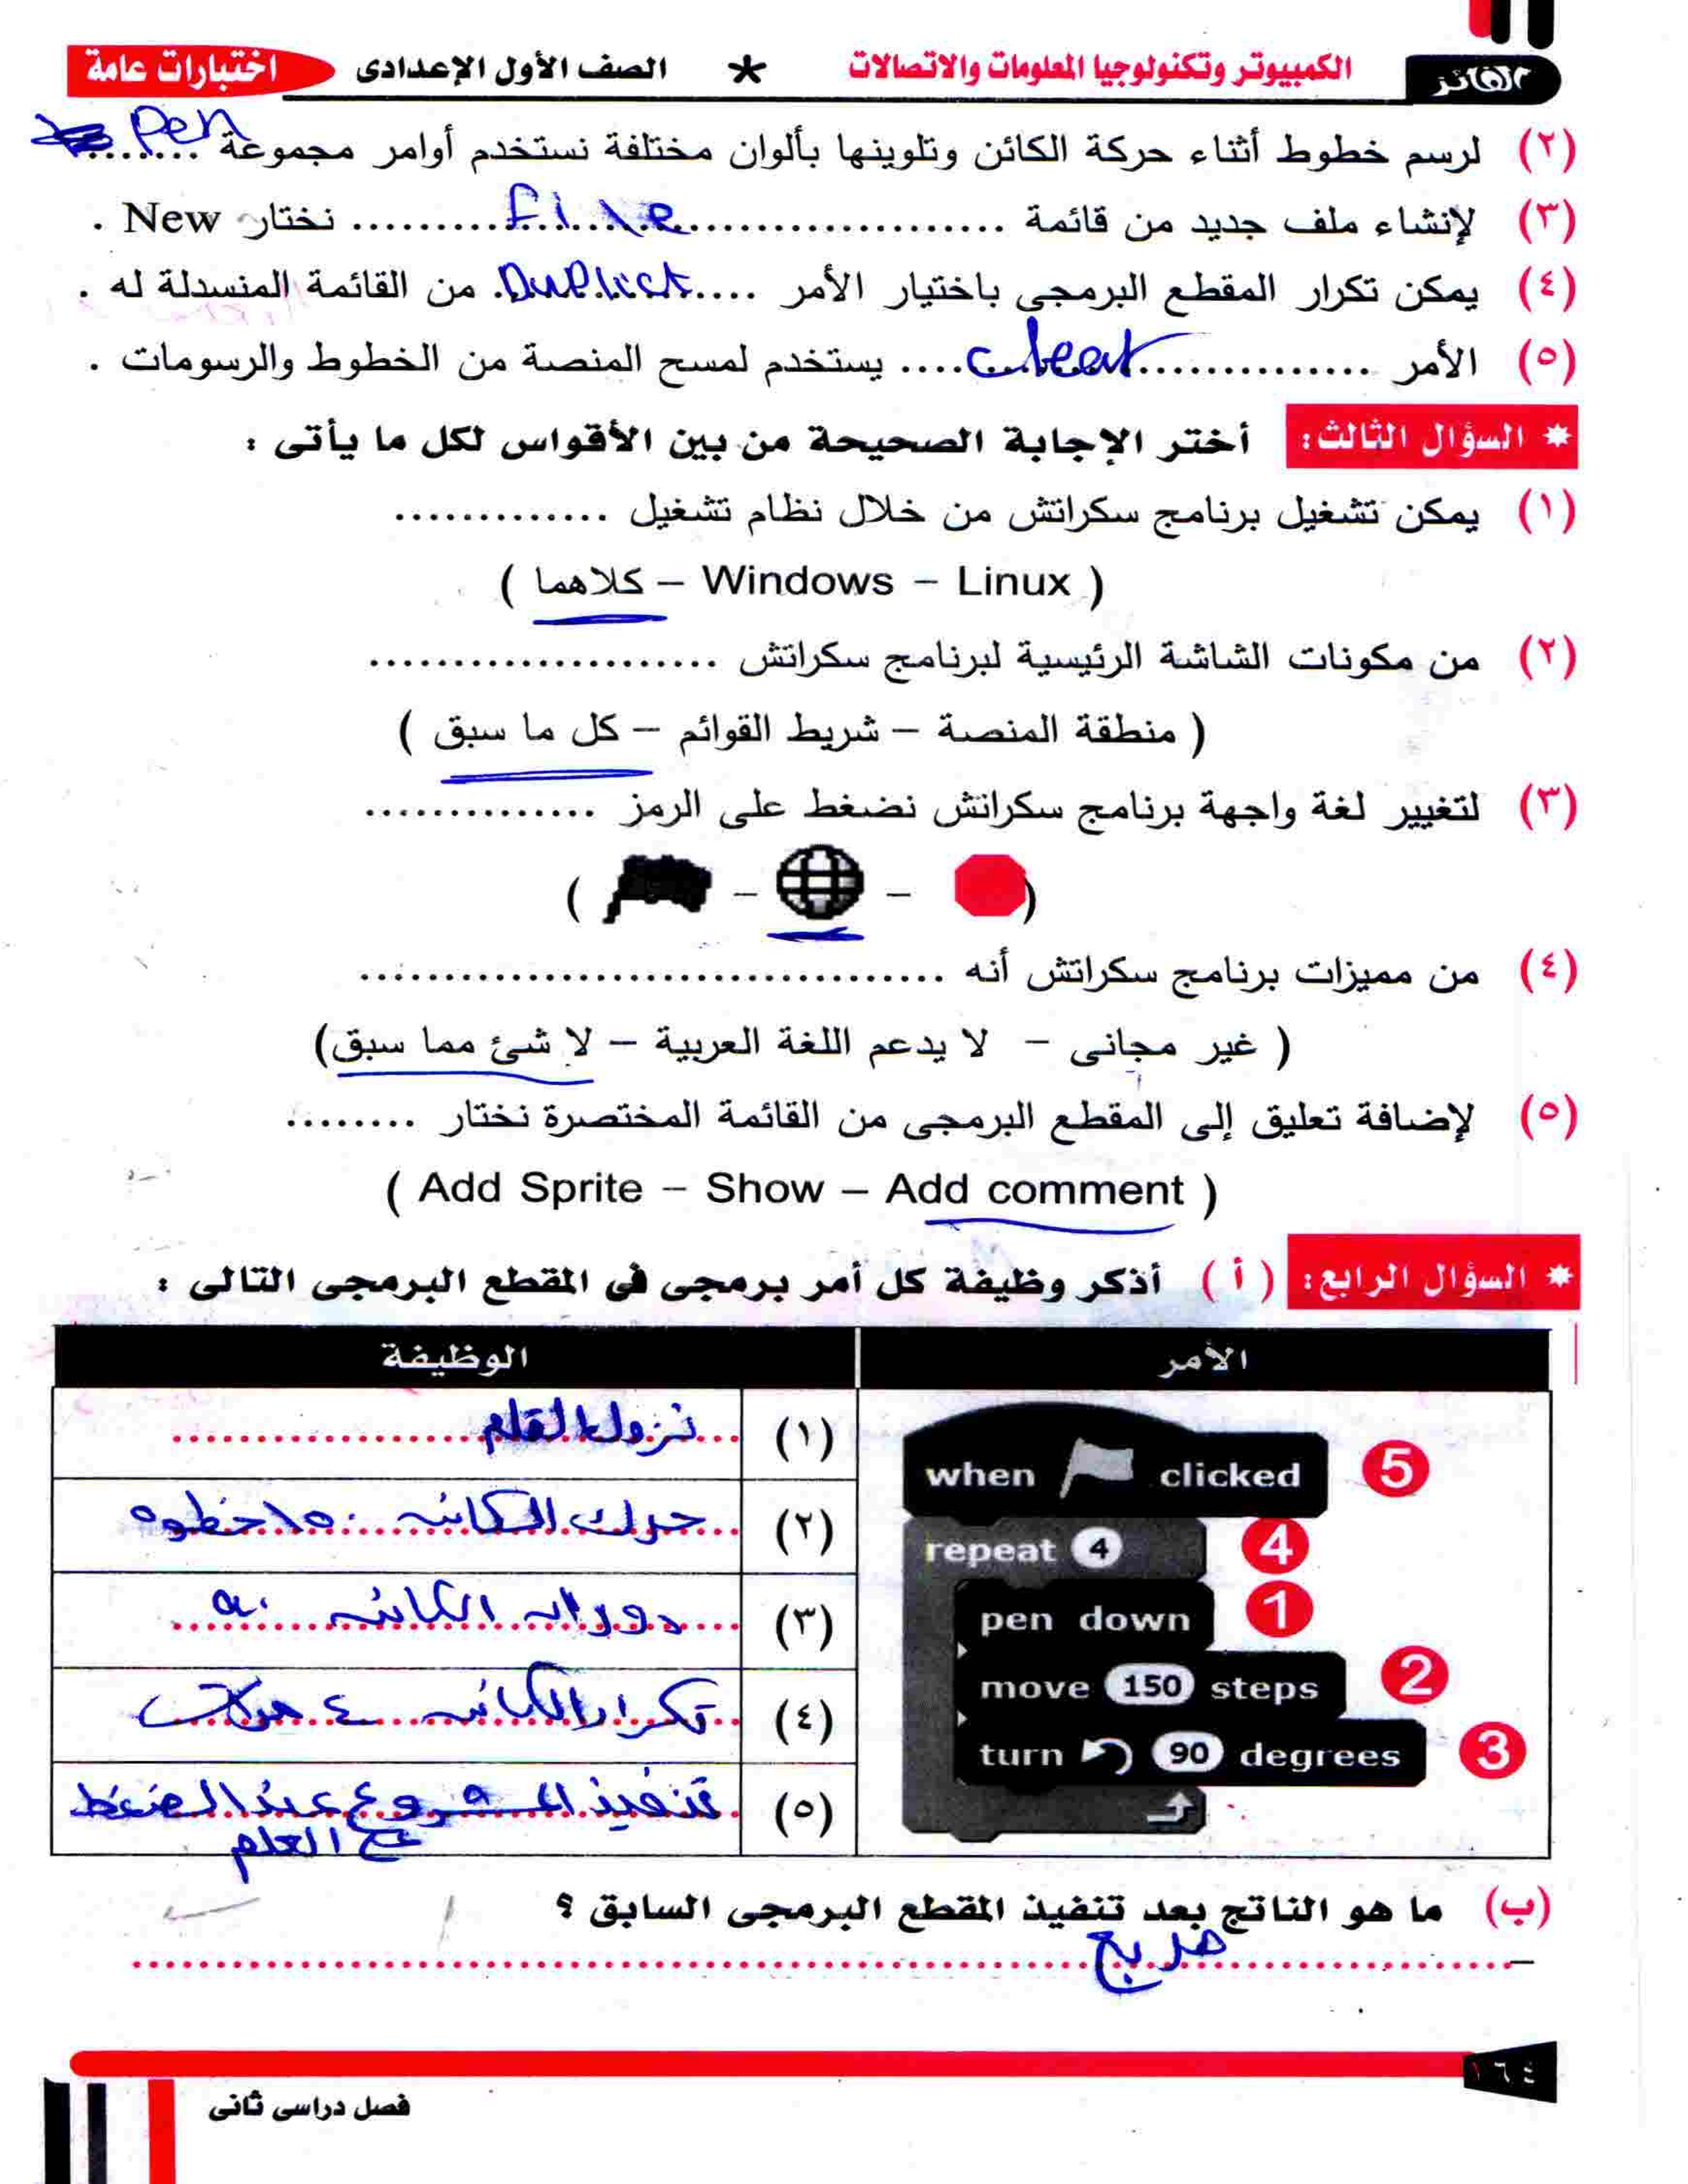 الفائز الكمبيوتر وتكنولوجيا المعلومات والاتصالات * الصف الأول الإعدادى اختبارات عامة
(٢) لرسم خطوط أثناء حركة الكائن وتلوينها بألوان مختلفة نستخدم أوامر مجموعة ........ Pen
(٣) لإنشاء ملف جديد من قائمة ........ File ........ نختار New .
(٤) يمكن تكرار المقطع البرمجى باختيار الأمر .... Duplict من القائمة المنسدلة له .
(٥) الأمر ........ clear .... يستخدم لمسح المنصة من الخطوط والرسومات .
* السؤال الثالث: أختر الإجابة الصحيحة من بين الأقواس لكل ما يأتى :
(١) يمكن تشغيل برنامج سكراتش من خلال نظام تشغيل .............
( كلاهما – Windows – Linux )
(٢) من مكونات الشاشة الرئيسية لبرنامج سكراتش .....................
( منطقة المنصة – شريط القوائم – كل ما سبق )
(٣) لتغيير لغة واجهة برنامج سكراتش نضغط على الرمز ..............
( – – )
(٤) من مميزات برنامج سكراتش أنه ...................................
( غير مجانى – لا يدعم اللغة العربية – لا شئ مما سبق)
(٥) لإضافة تعليق إلى المقطع البرمجى من القائمة المختصرة نختار ........
( Add Sprite – Show – Add comment )
* السؤال الرابع: ( أ ) أذكر وظيفة كل أمر برمجى فى المقطع البرمجى التالى :
الأمر الوظيفة
when clicked 5
repeat 4 4
pen down 1
move 150 steps 2
turn 90 degrees 3
(١) نزول القلم
(٢) حرك الكائن ١٥٠ خطوه
(٣) دوران الكائن ٩٠
(٤) تكرار الكائن ٤ مرات
(٥) تنفيذ المشروع عند الضغط
ع العلم
(ب) ما هو الناتج بعد تنفيذ المقطع البرمجى السابق ؟
– مربع
١٦٤
فصل دراسى ثانى